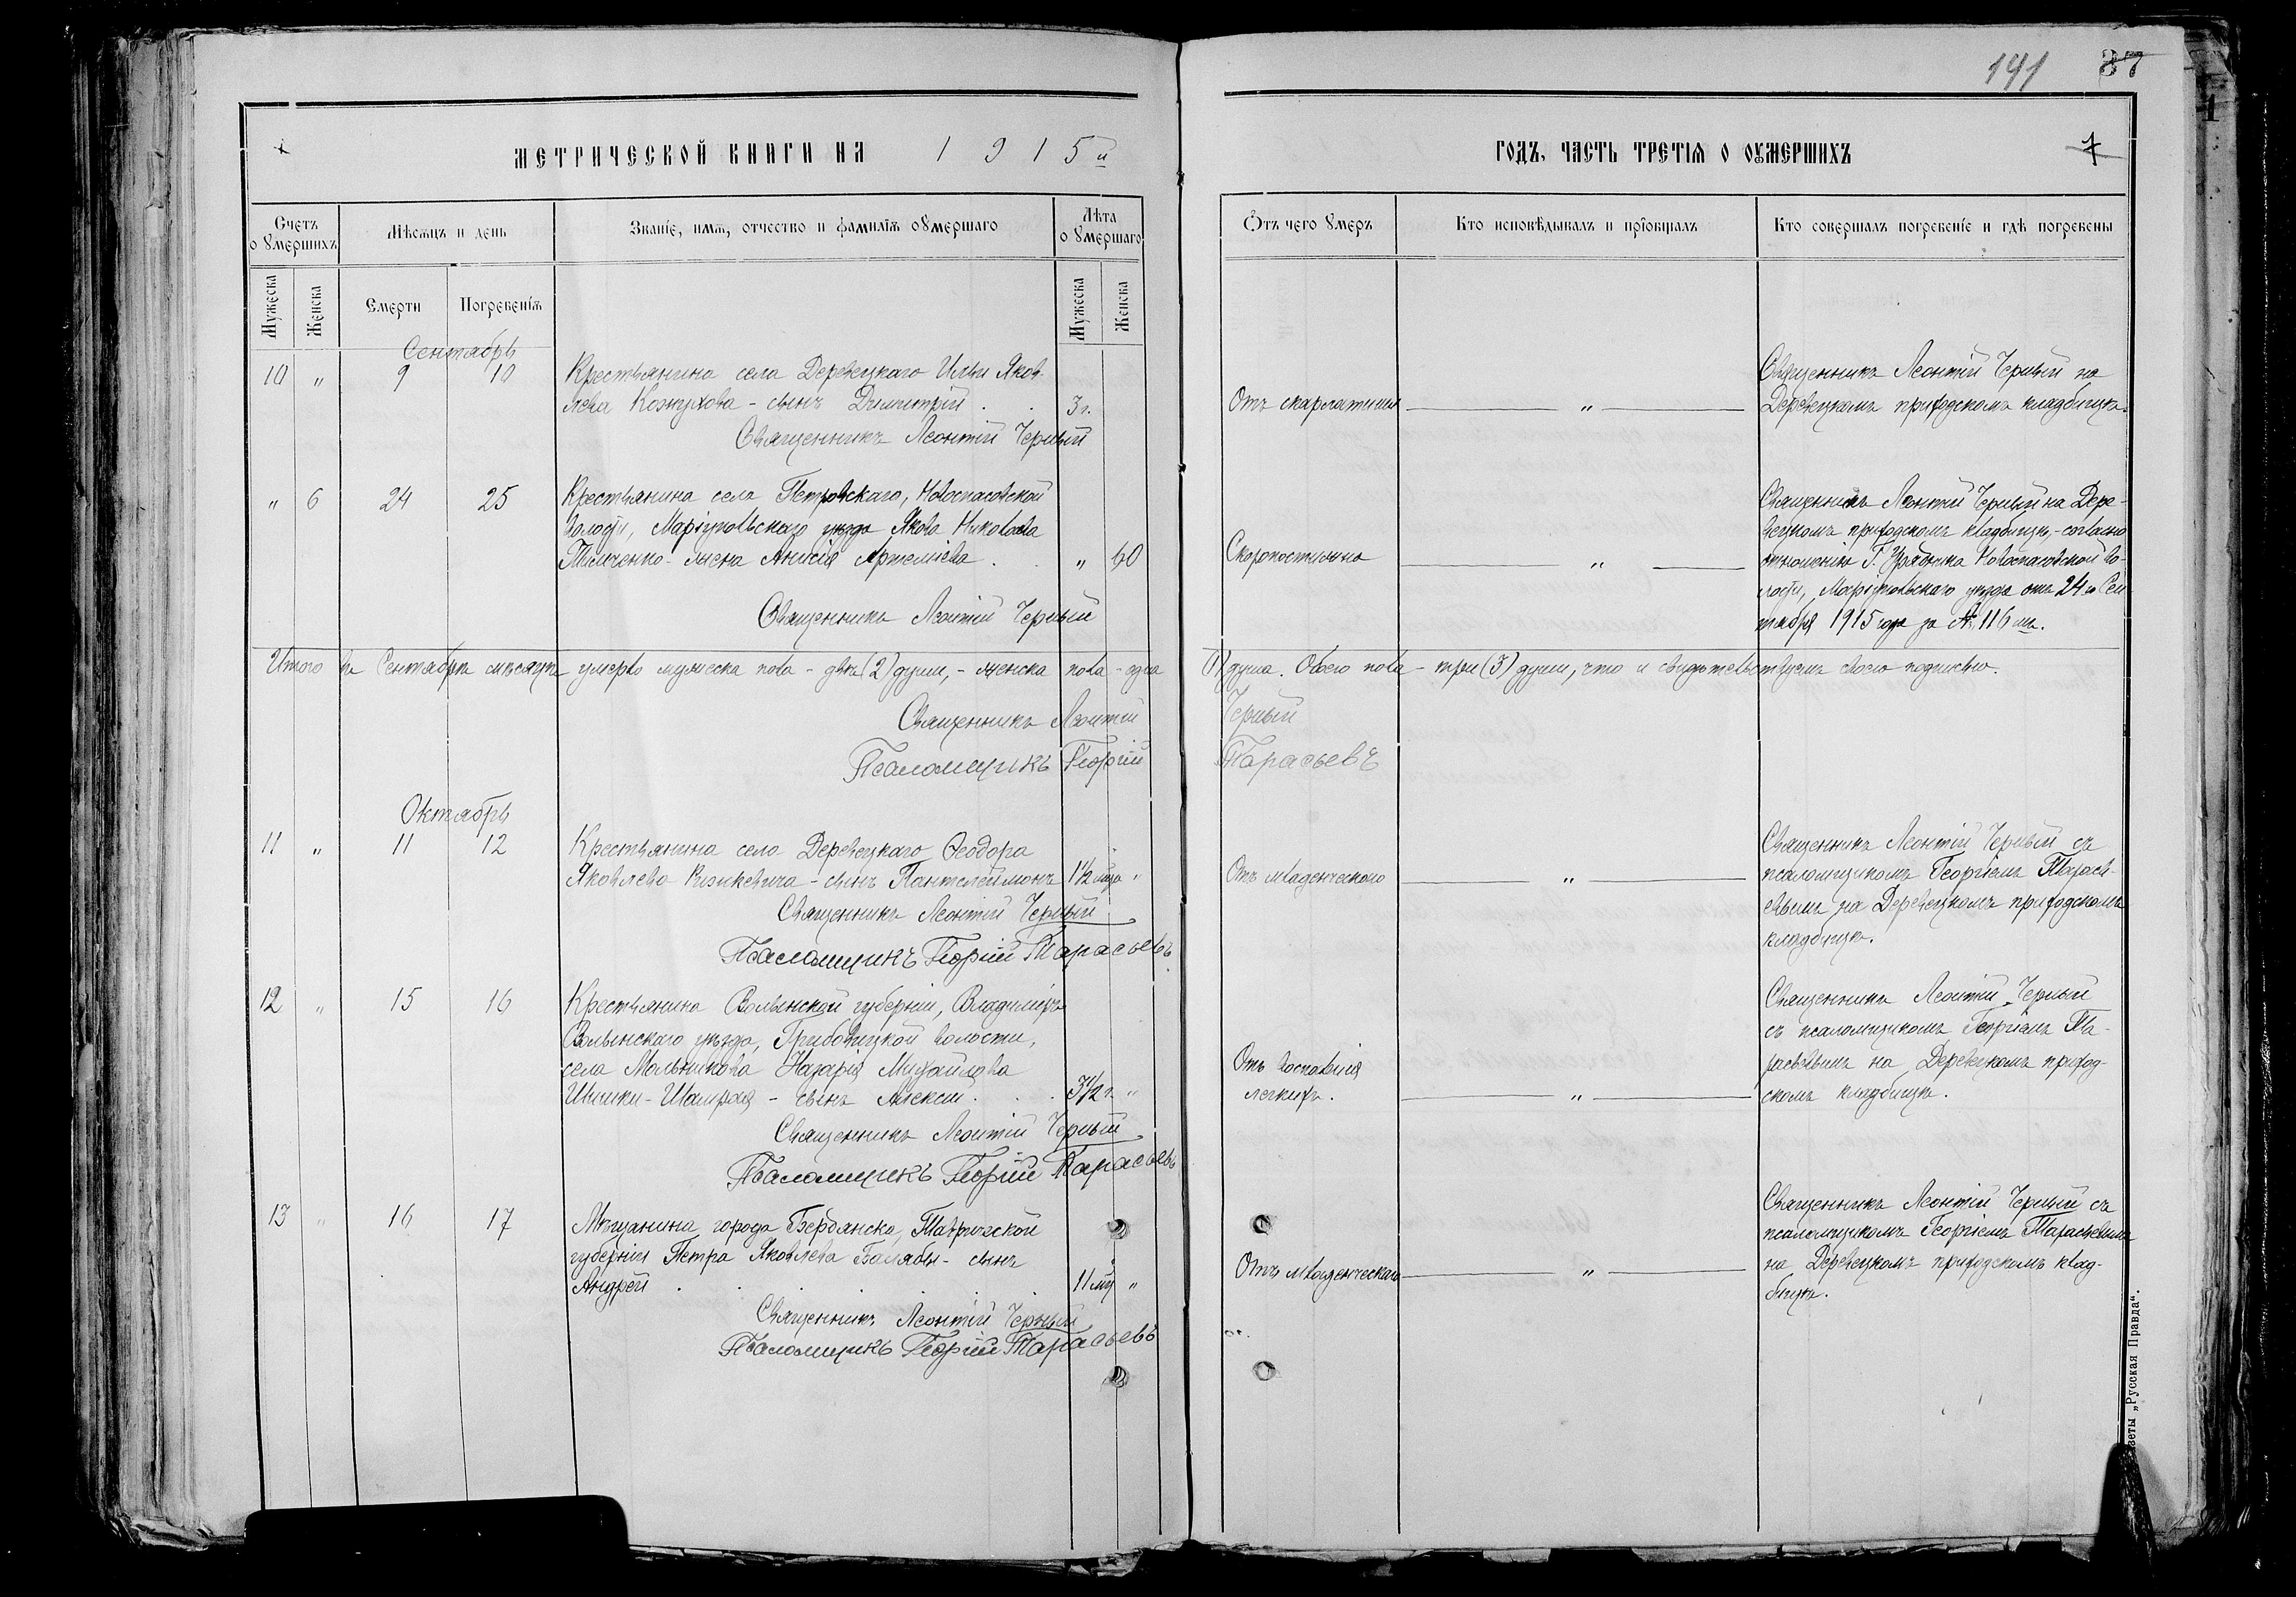 141 37
МЕТРИЧЕСКОЙ КНИГИ НА 1915й
ГОДЪ, ЧАСТЬ ТРЕТІЯ О ОУМЕРШИХЪ
7
Счетъ о умершихъ
Мѣсяцъ и день
Званіе, имя, отчество и фамилія оумершаго
Лѣта оумершаго
Отъ чего умеръ
Кто исповѣдывалъ и пріобщалъ
Кто совершалъ погребеніе и гдѣ погребены
Мужеска
Женска
Смерти
Погребенія
Мужеска
Женска
Сентябрь
10 " 9 10
Крестьянина села Деревецкаго Ильи Яков-
лева Кожухова - сынъ Димитрій . . 3 г.
Священникъ Леонтій Черный
Отъ скарлатины "
Священникъ Леонтій Черный на
Деревецкомъ приходскомъ кладбищѣ.
" 6 24 25
Крестьянина села Петровскаго, Новоспасовской
волости, Маріупольскаго уѣзда Якова Николаева
жена Анисія Артеміева . . " 60
Священникъ Леонтій Черный
Скоропостижно "
Священникъ Леонтій Черный на Дере-
вецкомъ приходскомъ кладбищѣ, - согласно
отношенію Г. Урядника Новоспасовской во-
лости, Маріупольскаго уѣзда отъ 24го Сен
тября 1915 года за № 116мъ.
Итого въ Сентябрѣ мѣсяцѣ умерло мужеска пола - двѣ (2) души, - женска пола - одна (1) душа. Обоего пола - три (3) души, что и свидѣтельствуемъ своею подписью.
Священникъ Леонтій Черный
Псаломщикъ Георгій Тарасьевъ
Октябрь
11 " 11 12
Крестьянина села Деревецкаго Ѳеодора
Яковлева - сынъ Пантелеймонъ 1½ мца "
Священникъ Леонтій Черный
Псаломщикъ Георгій Тарасьевъ
Отъ младенческаго "
Священникъ Леонтій Черный съ
псаломщикомъ Георгіемъ Тарась-
евымъ на Деревецкомъ приходскомъ
кладбищѣ.
12 " 15 16
Крестьянина Волынской губерніи, Владиміръ
Волынскаго уѣзда, Грибовицкой волости,
села Мальникова Назарія Михайлова
- сынъ Алексій . . . 3½ г. "
Священникъ Леонтій Черный
Псаломщикъ Георгій Тарасьевъ
Отъ воспаленія
легкихъ. "
Священникъ Леонтій Черный
съ псаломщикомъ Георгіемъ Та-
расьевымъ на Деревецкомъ приход-
скомъ кладбищѣ.
13 " 16 17
Мѣщанина города Бердянска, Таврической
губерніи Петра Яковлева Балябы - сынъ
Андрей . . . . . 11 мц "
Священникъ Леонтій Черный
Псаломщикъ Георгій Тарасьевъ
Отъ младенческаго "
Священникъ Леонтій Черный съ
псаломщикомъ Георгіемъ Тарасьевымъ
на Деревецкомъ приходскомъ клад-
бищѣ.
„Русская Правда“.